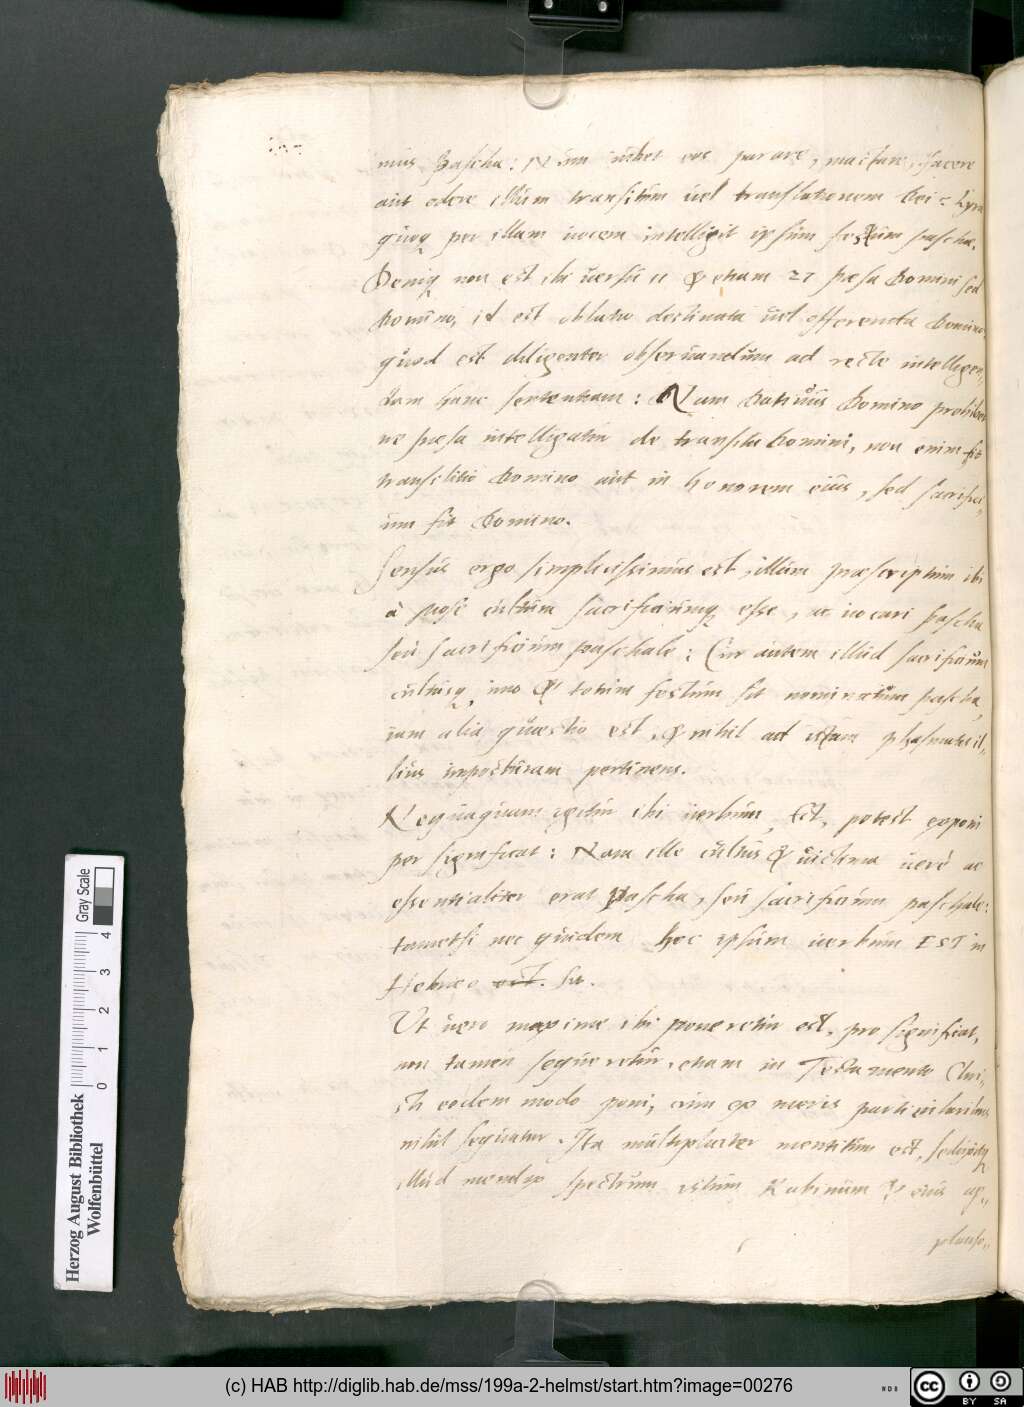 nus Pascha: Num iubet eos parare, mactare, facere
aut edere illum transitum uel translationem Dei? Lyra
quoq per illam uocem intelligit ipsum festum paschæ.
Deniq non est ibi uersu 11 & etiam 27 pæsa Domini sed
Domino, id est oblatio destinata uel offerenda Domino,
quod est diligenter obseruandum ad recte intelligen„
dam hanc sententiam: Nam Datiuus Domino prohibet
ne pæsa intelligatur de transitu Domini, non enim fit
transitio Domino aut in honorem eius, sed sacrifici„
um fit Domino.
Sensus ergo simplicissimus est, illum præscriptum ibi
à Mose cultum sacrificiumq esse, ac uocari pascha
seu sacrificium paschale: Cur autem illud sacrificium
cultusq, imo & totum festum sit nominatum pascha,
iam alia quæstio est, & nihil ad istam phasmatis il„
lius imposturam pertinens.
Nequaquam igitur ibi uerbum, Est, potest exponi
per significat: Nam ille cultus & uictima uerè ac
essentialiter erat Pascha, seu sacrificium paschale:
tametsi nec quidem hoc ipsum uerbum EST in
Hebræo est. sit.
Ut uero maxime ibi poneretur est, pro significat,
non tamen sequeretur, etiam in Testamento Chri„
sti eodem modo poni, cum ex meris particularibus
nihil sequatur. Ita multipliciter mentitum est,
illud mendax spectrum istum Rabinum & eius ap„
plauso„
Herzog August Bibliothek
Wolfenbüttel
Gray Scale
0 1 2 3 4
(c) HAB http://diglib.hab.de/mss/199a-2-helmst/start.htm?image=00276
cc BY SA